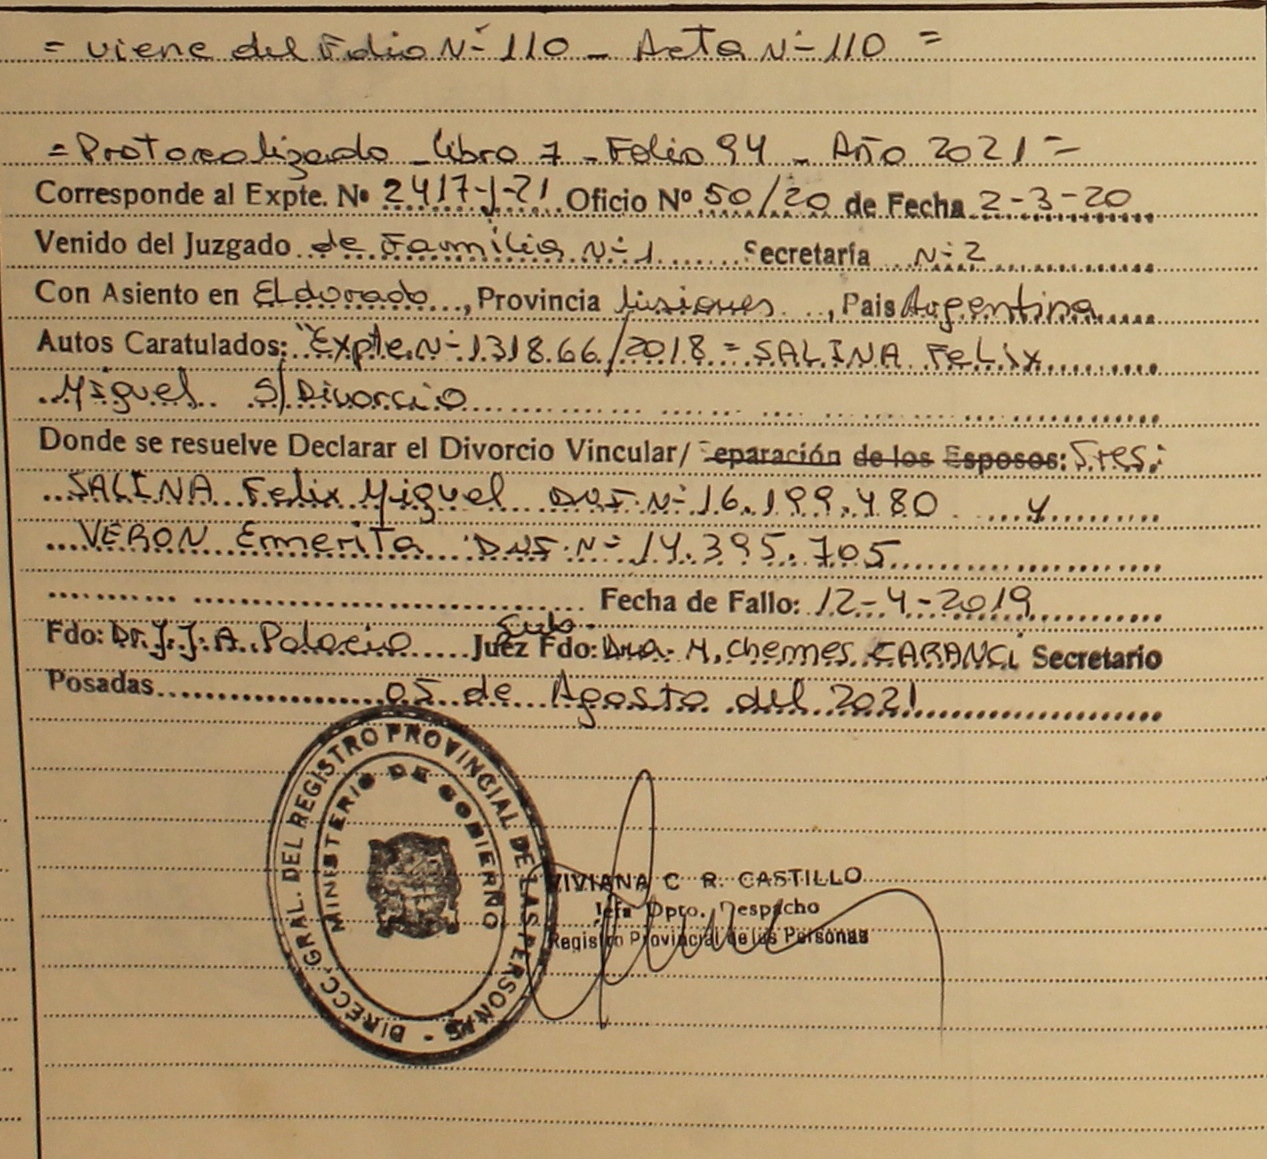 = viene del Folio Nº 110 _ Acta Nº 110 =
= Protocolizado _ Libro 7 _ Folio 94 _ Año 2021 =
Corresponde al Expte. Nº 2417-J-21 Oficio Nº 50/20 de Fecha 2-3-20
Venido del Juzgado de Familia Nº 1 Secretaría Nº 2
Con Asiento en Eldorado, Provincia Misiones, Pais Argentina
Autos Caratulados: "Expte. Nº 131866/2018 = SALINA Felix
Miguel S/Divorcio
Donde se resuelve Declarar el Divorcio Vincular/ Separación de los Esposos: Sres:
SALINA Felix Miguel DNI Nº 16.199.480 y
VERON Emerita DNI Nº 14.395.705
Fecha de Fallo: 12-4-2019
Fdo: Dr. J. J. A. Palacio Juez Fdo: Dra. M. Chemes CARANCi Secretario
Posadas 05 de Agosto del 2021
DIRECC. GRAL. DEL REGISTRO PROVINCIAL DE LAS PERSONAS -
MINISTERIO DE GOBIERNO
VIVIANA C R. CASTILLO
Jefa Dpto. Despacho
Registro Provincial de las Personas